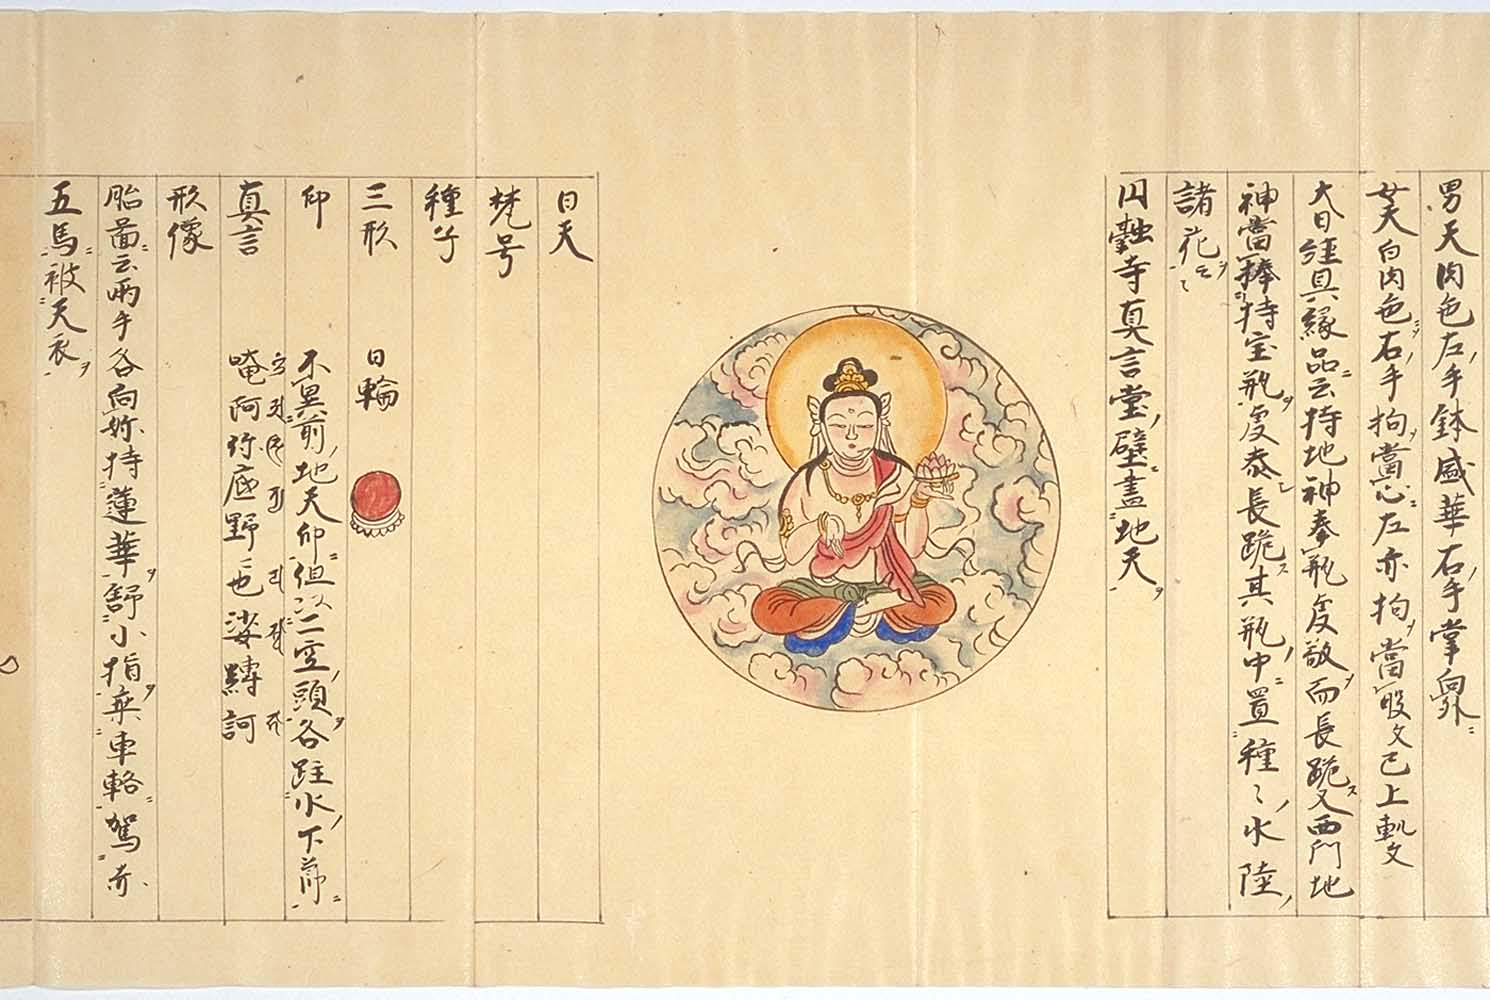 男天肉色左手鉢盛華右手掌向外
女天白肉色右手拘當心左亦拘當股文已上軌文
大日経具縁品云持地神奉瓶虔敬而長跪又西門地
神當捧持宝瓶虔恭長跪其瓶中置種〻水陸
諸花云〻
円融寺真言堂壁畫地天
日天
梵号
種子
三形 日輪
印 不異前地天印但以二空頭各跓水下節
真言 唵阿弥底野二也娑嚩訶
形像
胎啚云兩手各向妳持蓮華舒小指乗車輅駕赤
五馬被天衣